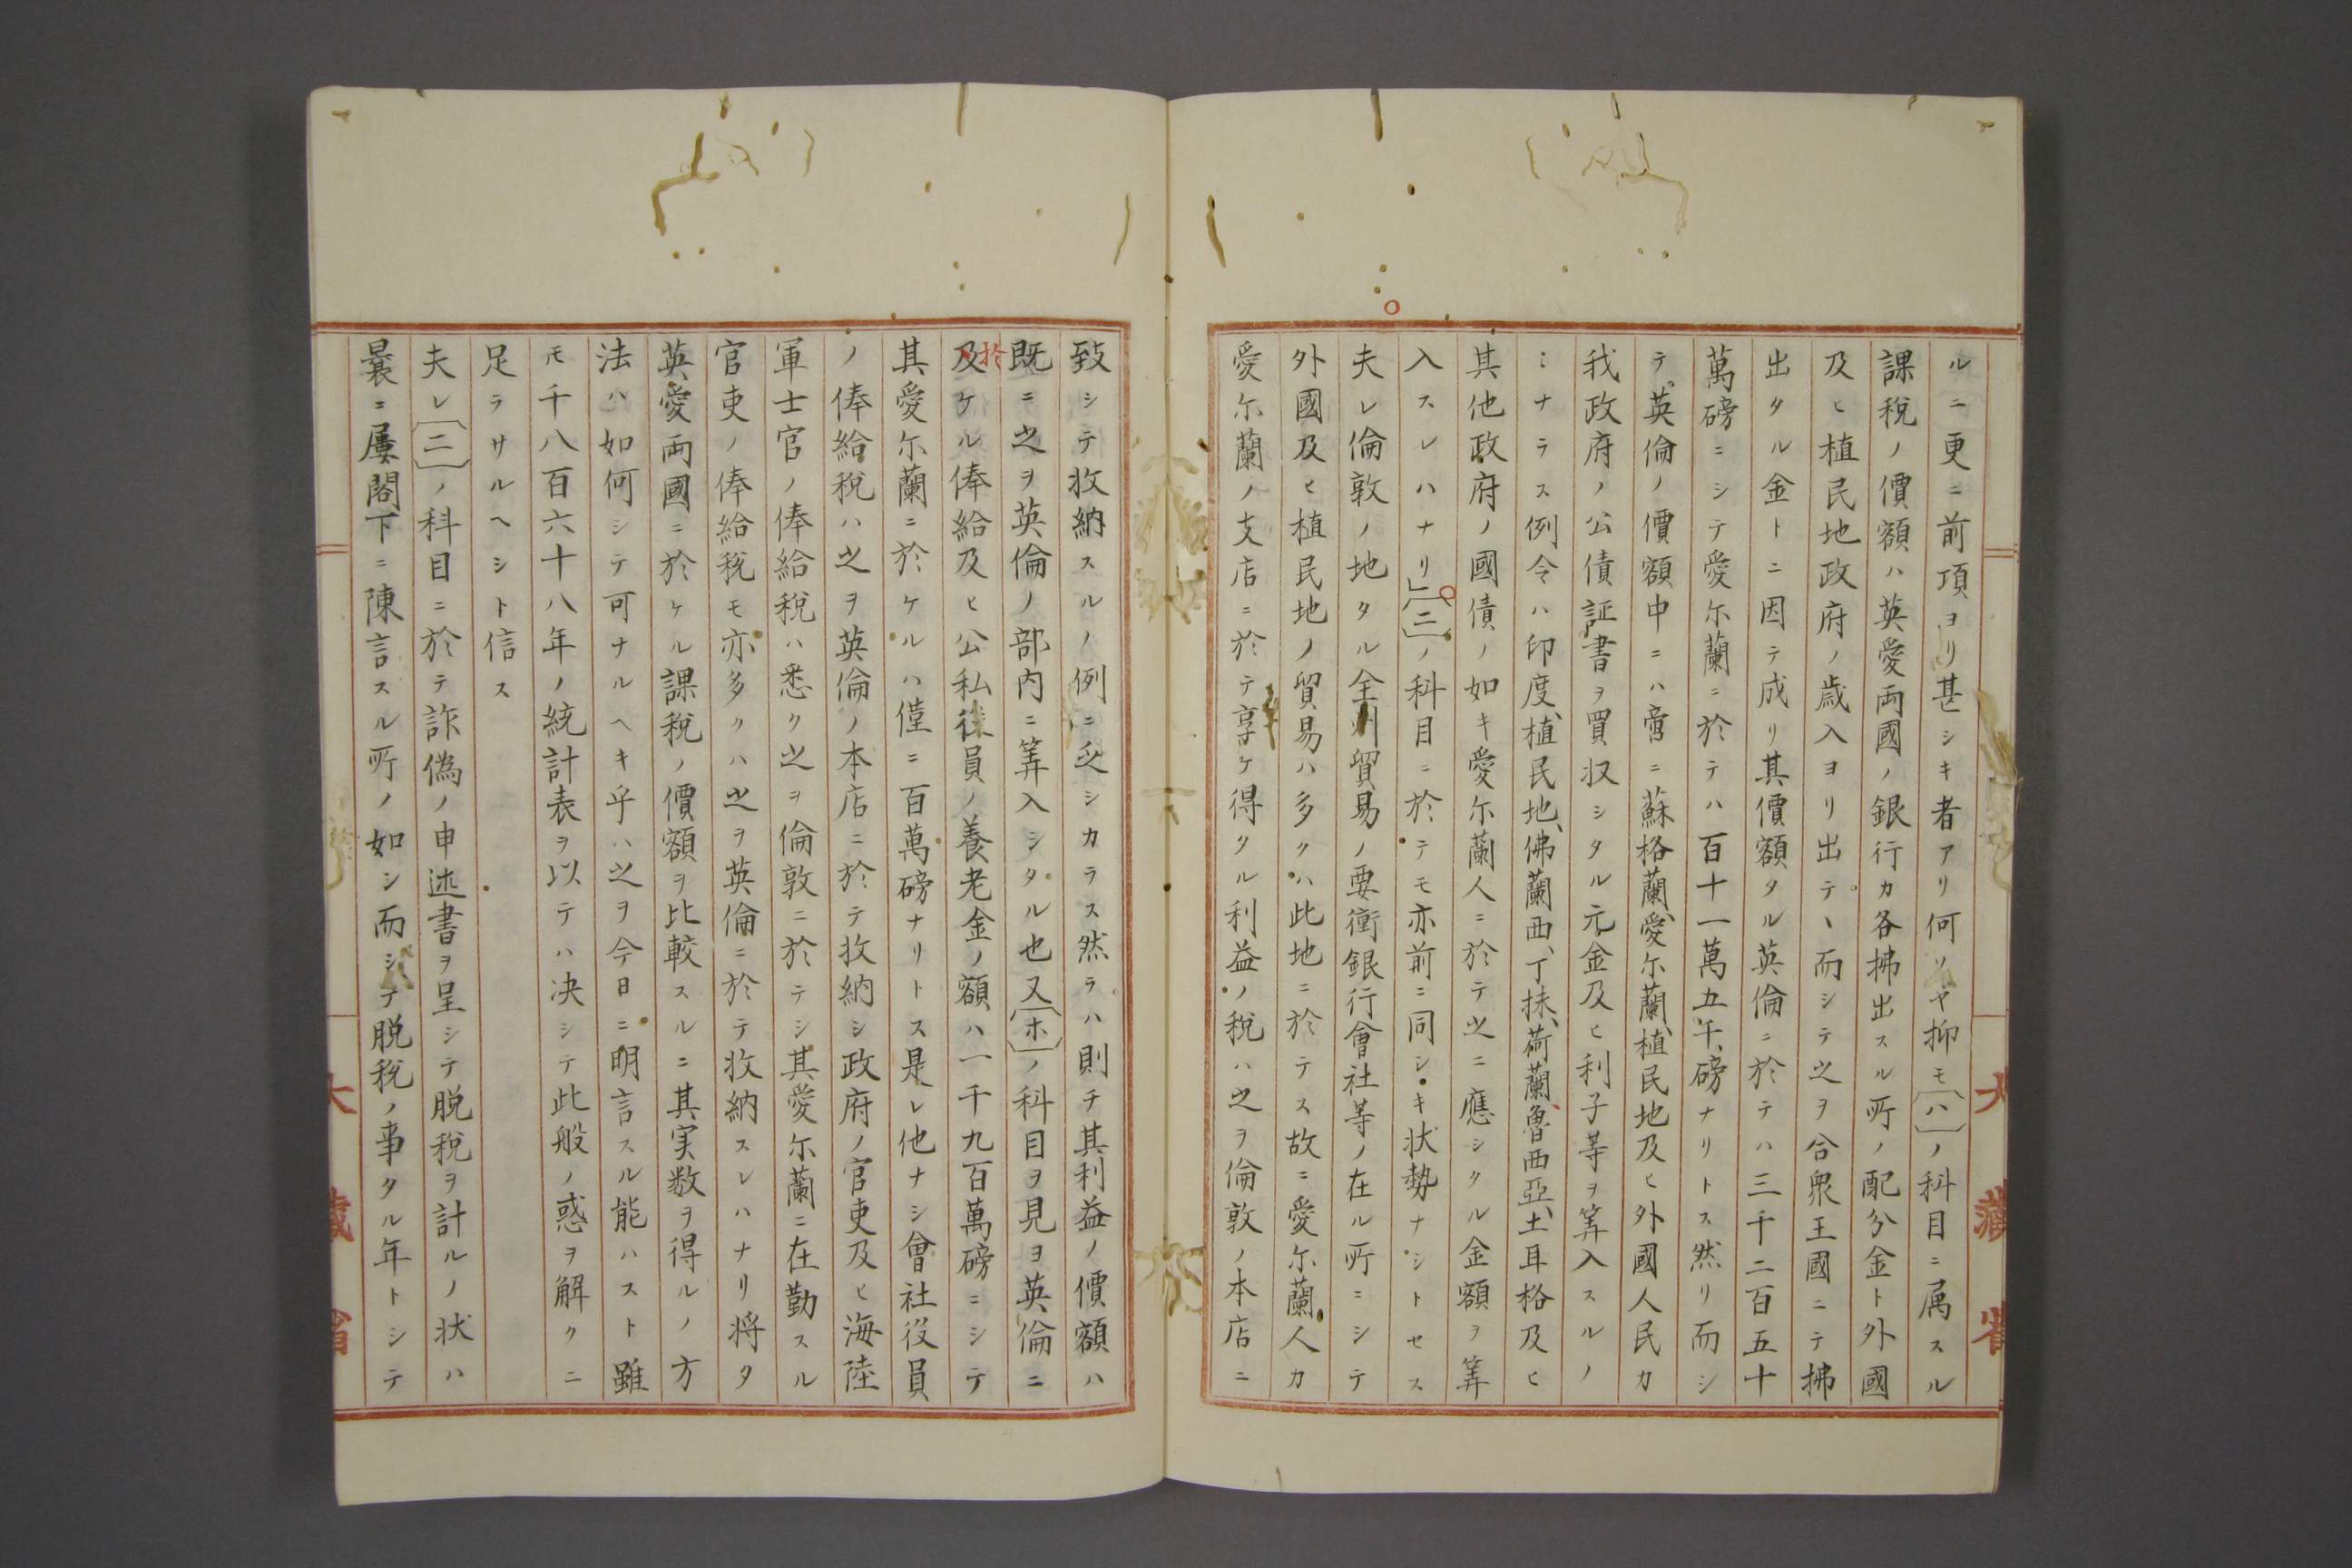 ルニ更ニ前項ヨリ甚シキ者アリ何ソヤ抑モ〔ハ〕ノ科目ニ属スル
課税ノ價額ハ英愛両國ノ銀行カ各拂出スル所ノ配分金ト外國
及ヒ植民地政府ノ歳入ヨリ出テヽ而シテ之ヲ合衆王國ニテ拂
出タル金トニ因テ成リ其價額タル英倫ニ於テハ三千二百五十
萬磅ニシテ愛尓蘭ニ於テハ百十一萬五千磅ナリトス然リ而シ
テ英倫ノ價額中ニハ啻ニ蘇格蘭、愛尓蘭、植民地及ヒ外國人民カ
我政府ノ公債証書ヲ買収シタル元金及ヒ利子等ヲ筭入スルノ
ミナラス例令ハ印度、植民地、佛蘭西、丁抹、荷蘭、魯西亞、土耳格及ヒ
其他政府ノ國債ノ如キ愛尓蘭人ニ於テ之ニ應シタル金額ヲ筭
入スレハナリ」〔ニ〕ノ科目ニ於テモ亦前ニ同シキ状勢ナシトセス
夫レ倫敦ノ地タル全州貿易ノ要衝銀行會社等ノ在ル所ニシテ
外國及ヒ植民地ノ貿易ハ多クハ此地ニ於テス故ニ愛尓蘭人カ
愛尓蘭ノ支店ニ於テ享ケ得タル利益ノ税ハ之ヲ倫敦ノ本店ニ
大藏省
致シテ收納スルノ例ニ乏シカラス然ラハ則チ其利益ノ價額ハ
既ニ之ヲ英倫ノ部内ニ筭入シタル也又〔ホ〕ノ科目ヲ見ヨ英倫ニ
於
及ケル俸給及ヒ公私役員ノ養老金ノ額ハ一千九百萬磅ニシテ
其愛尓蘭ニ於ケルハ僅ニ百萬磅ナリトス是レ他ナシ會社役員
ノ俸給税ハ之ヲ英倫ノ本店ニ於テ收納シ政府ノ官吏及ヒ海陸
軍士官ノ俸給税ハ悉ク之ヲ倫敦ニ於テシ其愛尓蘭ニ在勤スル
官吏ノ俸給税モ亦多クハ之ヲ英倫ニ於テ收納スレハナリ将タ
英愛両國ニ於ケル課税ノ價額ヲ比較スルニ其実数ヲ得ルノ方
法ハ如何シテ可ナルヘキ乎ハ之ヲ今日ニ明言スル能ハスト雖
モ千八百六十八年ノ統計表ヲ以テハ决シテ此般ノ惑ヲ解クニ
足ラサルヘシト信ス
夫レ〔ニ〕ノ科目ニ於テ詐偽ノ申述書ヲ呈シテ脱税ヲ計ルノ状ハ
曩ニ屢閣下ニ陳言スル所ノ如シ而シテ脱税ノ事タル年トシテ
大藏省